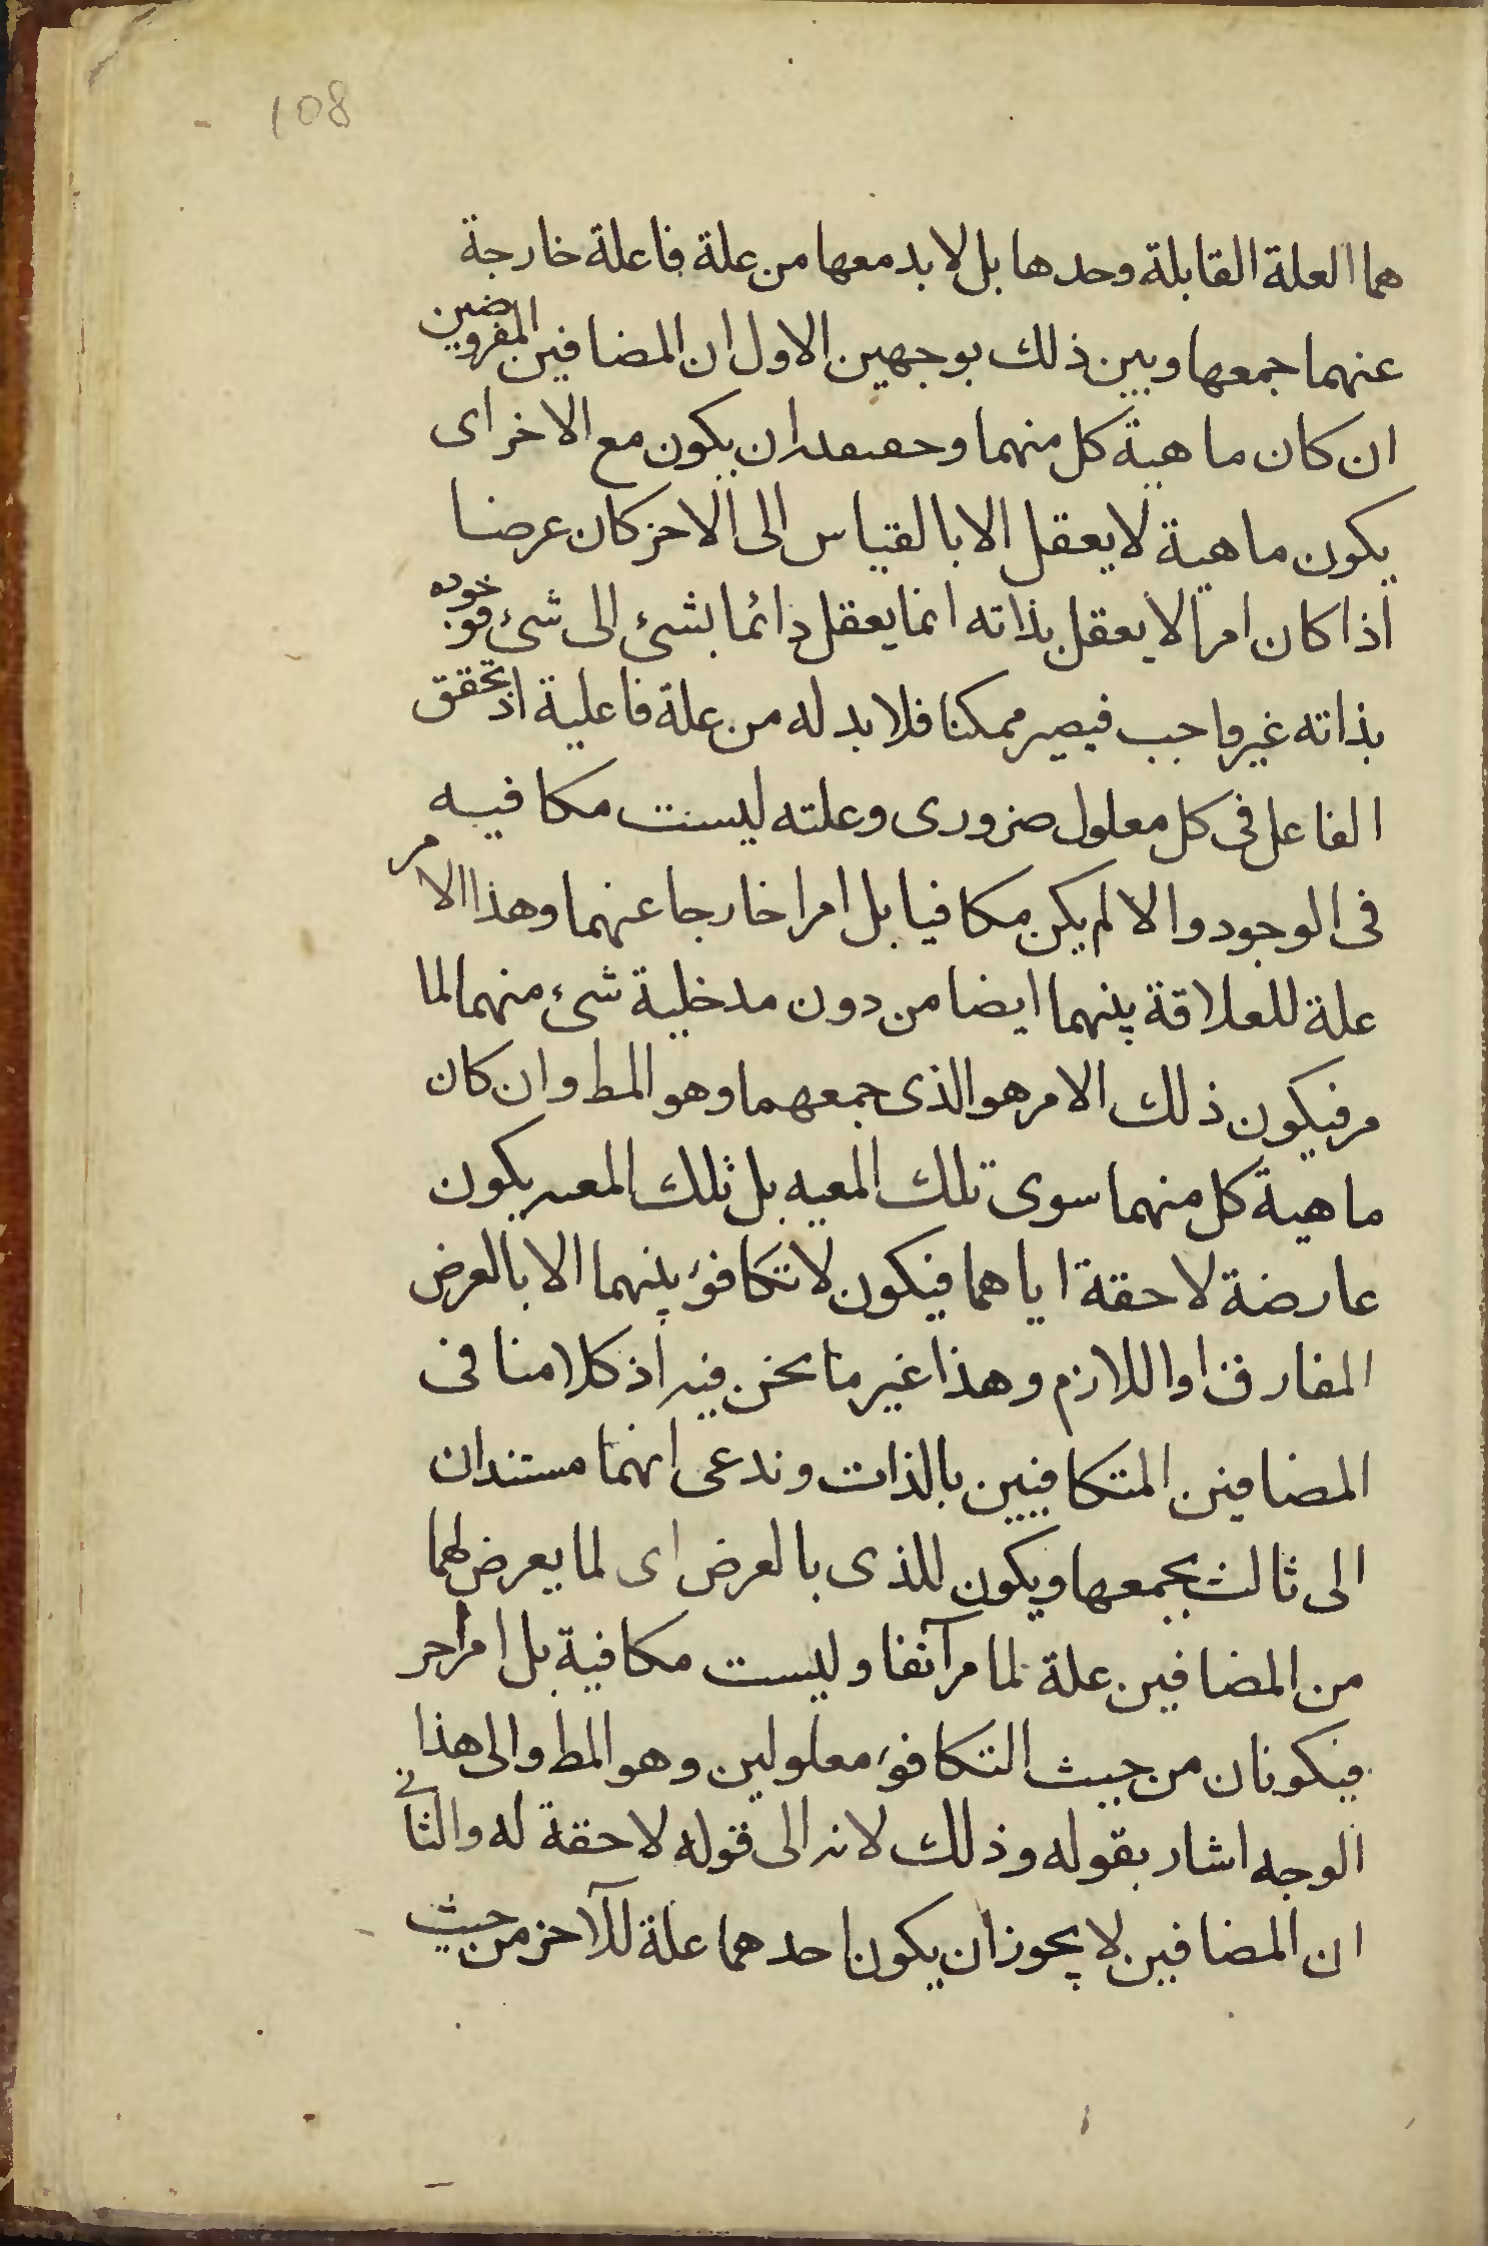 108
هما العلة القابلة وحدها بل لا بد معها من علة فاعلة خارجة
عنهما جمعها وبين ذلك بوجهين الاول ان المضافين المفروضين
ان كان ماهية كل منهما وحقيقته ان يكون مع الاخر اى
يكون ماهية لا يعقل الا بالقياس الى الاخر كان عرضا
اذا كان امرا لا يعقل بذاته انما يعقل دائما بشئ الى شئ فوجوده
بذاته غير واجب فيصير ممكنا فلا بد له من علة فاعلية اذ تحقق
الفاعل فى كل معلول ضرورى وعلته ليست مكافيه
فى الوجود والا لم يكن مكافيا بل امرا خارجا عنهما وهذا الامر
علة للعلاقة بينهما ايضا من دون مدخلية شئ منهما لما
مر فيكون ذلك الامر هو الذى جمعهما وهو المط وان كان
ماهية كل منهما سوى تلك المعيه بل تلك المعيه يكون
عارضة لاحقة اياهما فيكون لا تكافؤ بينهما الا بالعرض
المفارق او اللازم وهذا غير ما نحن فيه اذ كلامنا فى
المضافين المتكافيين بالذات وندعى انهما مستندان
الى ثالث يجمعها ويكون للذى بالعرض اى لما يعرض لهما
من المضافين علة لما مر آنفا وليست مكافية بل امر اخر
فيكونان من حيث التكافؤ معلولين وهو المط والى هذا
الوجه اشار بقوله وذلك لانه الى قوله لاحقة له والثانى
ان المضافين لا يجوز ان يكون احدهما علة للآخر من حيث